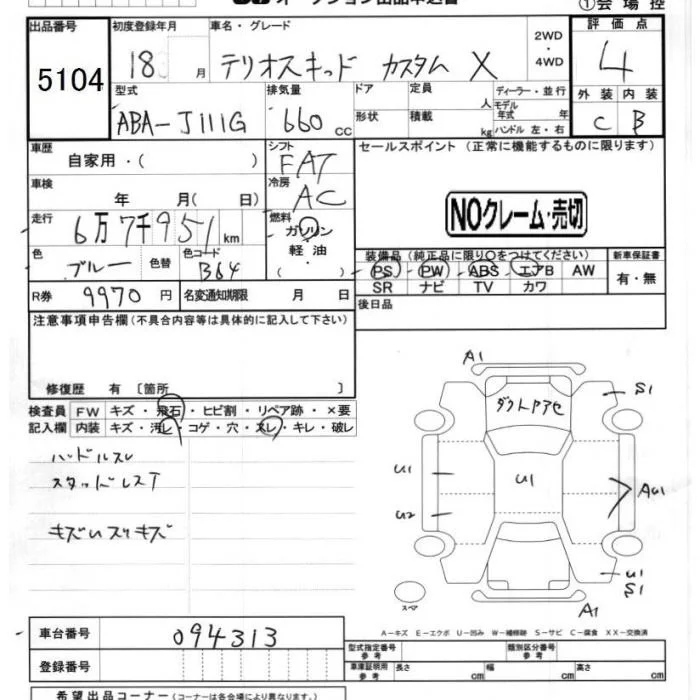 オークション出品申込書
①会場控
出品番号
5104
初度登録年月
18 月
車名・グレード
テリオスキッド カスタム X
2WD
・
4WD
評価点
4
型式
ABA-J111G
排気量
660 cc
ドア
形状
定員 人
積載 kg
ディーラー・並行
モデル
年式 年
ハンドル 左・右
外装 内装
C B
車歴
自家用・( )
シフト
FAT
セールスポイント (正常に機能するものに限ります)
車検
年 月( 日)
冷房
AC
NOクレーム・売切
走行
6万7千951km
燃料
ガソリン
軽油
・
( )
色
ブルー
色替
色コード
B64
装備品 (純正品に限り○をつけてください)
PS PW ABS エアB AW
SR ナビ TV カワ
新車保証書
有・無
R券
9970 円
名変通知期限 月 日
後日品
注意事項申告欄 (不具合内容等は具体的に記入して下さい)
修復歴 有 〔箇所 〕
検査員
記入欄
FW キズ・飛石・ヒビ割・リペア跡・×要
内装 キズ・汚レ・コゲ・穴・スレ・キレ・破レ
ハンドルスレ
スタッドレスT
キズUスリキズ
A1
S1
ダクトアアセ
U1
U1
AU1
U2
U1
S1
A1
スペア
A-キズ E-エクボ U-凹み W-補修跡 S-サビ C-腐食 XX-交換済
車台番号
094313
登録番号
型式指定番号
参考
類別区分番号
参考
車庫証明用
参考
長さ cm 幅 cm 高さ cm
希望出品コーナー (コーナーは各会場により異なります。)